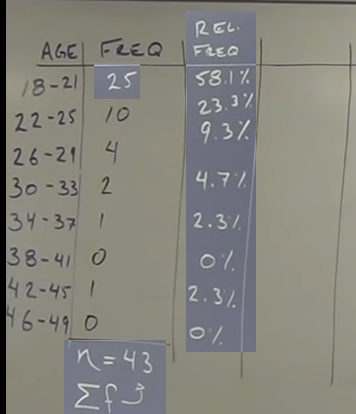 REL.
AGE FREQ FREQ
18-21 25 58.1%
22-25 10 23.3%
26-29 4 9.3%
30-33 2 4.7%
34-37 1 2.3%
38-41 0 0%
42-45 1 2.3%
46-49 0 0%
n=43
Σf